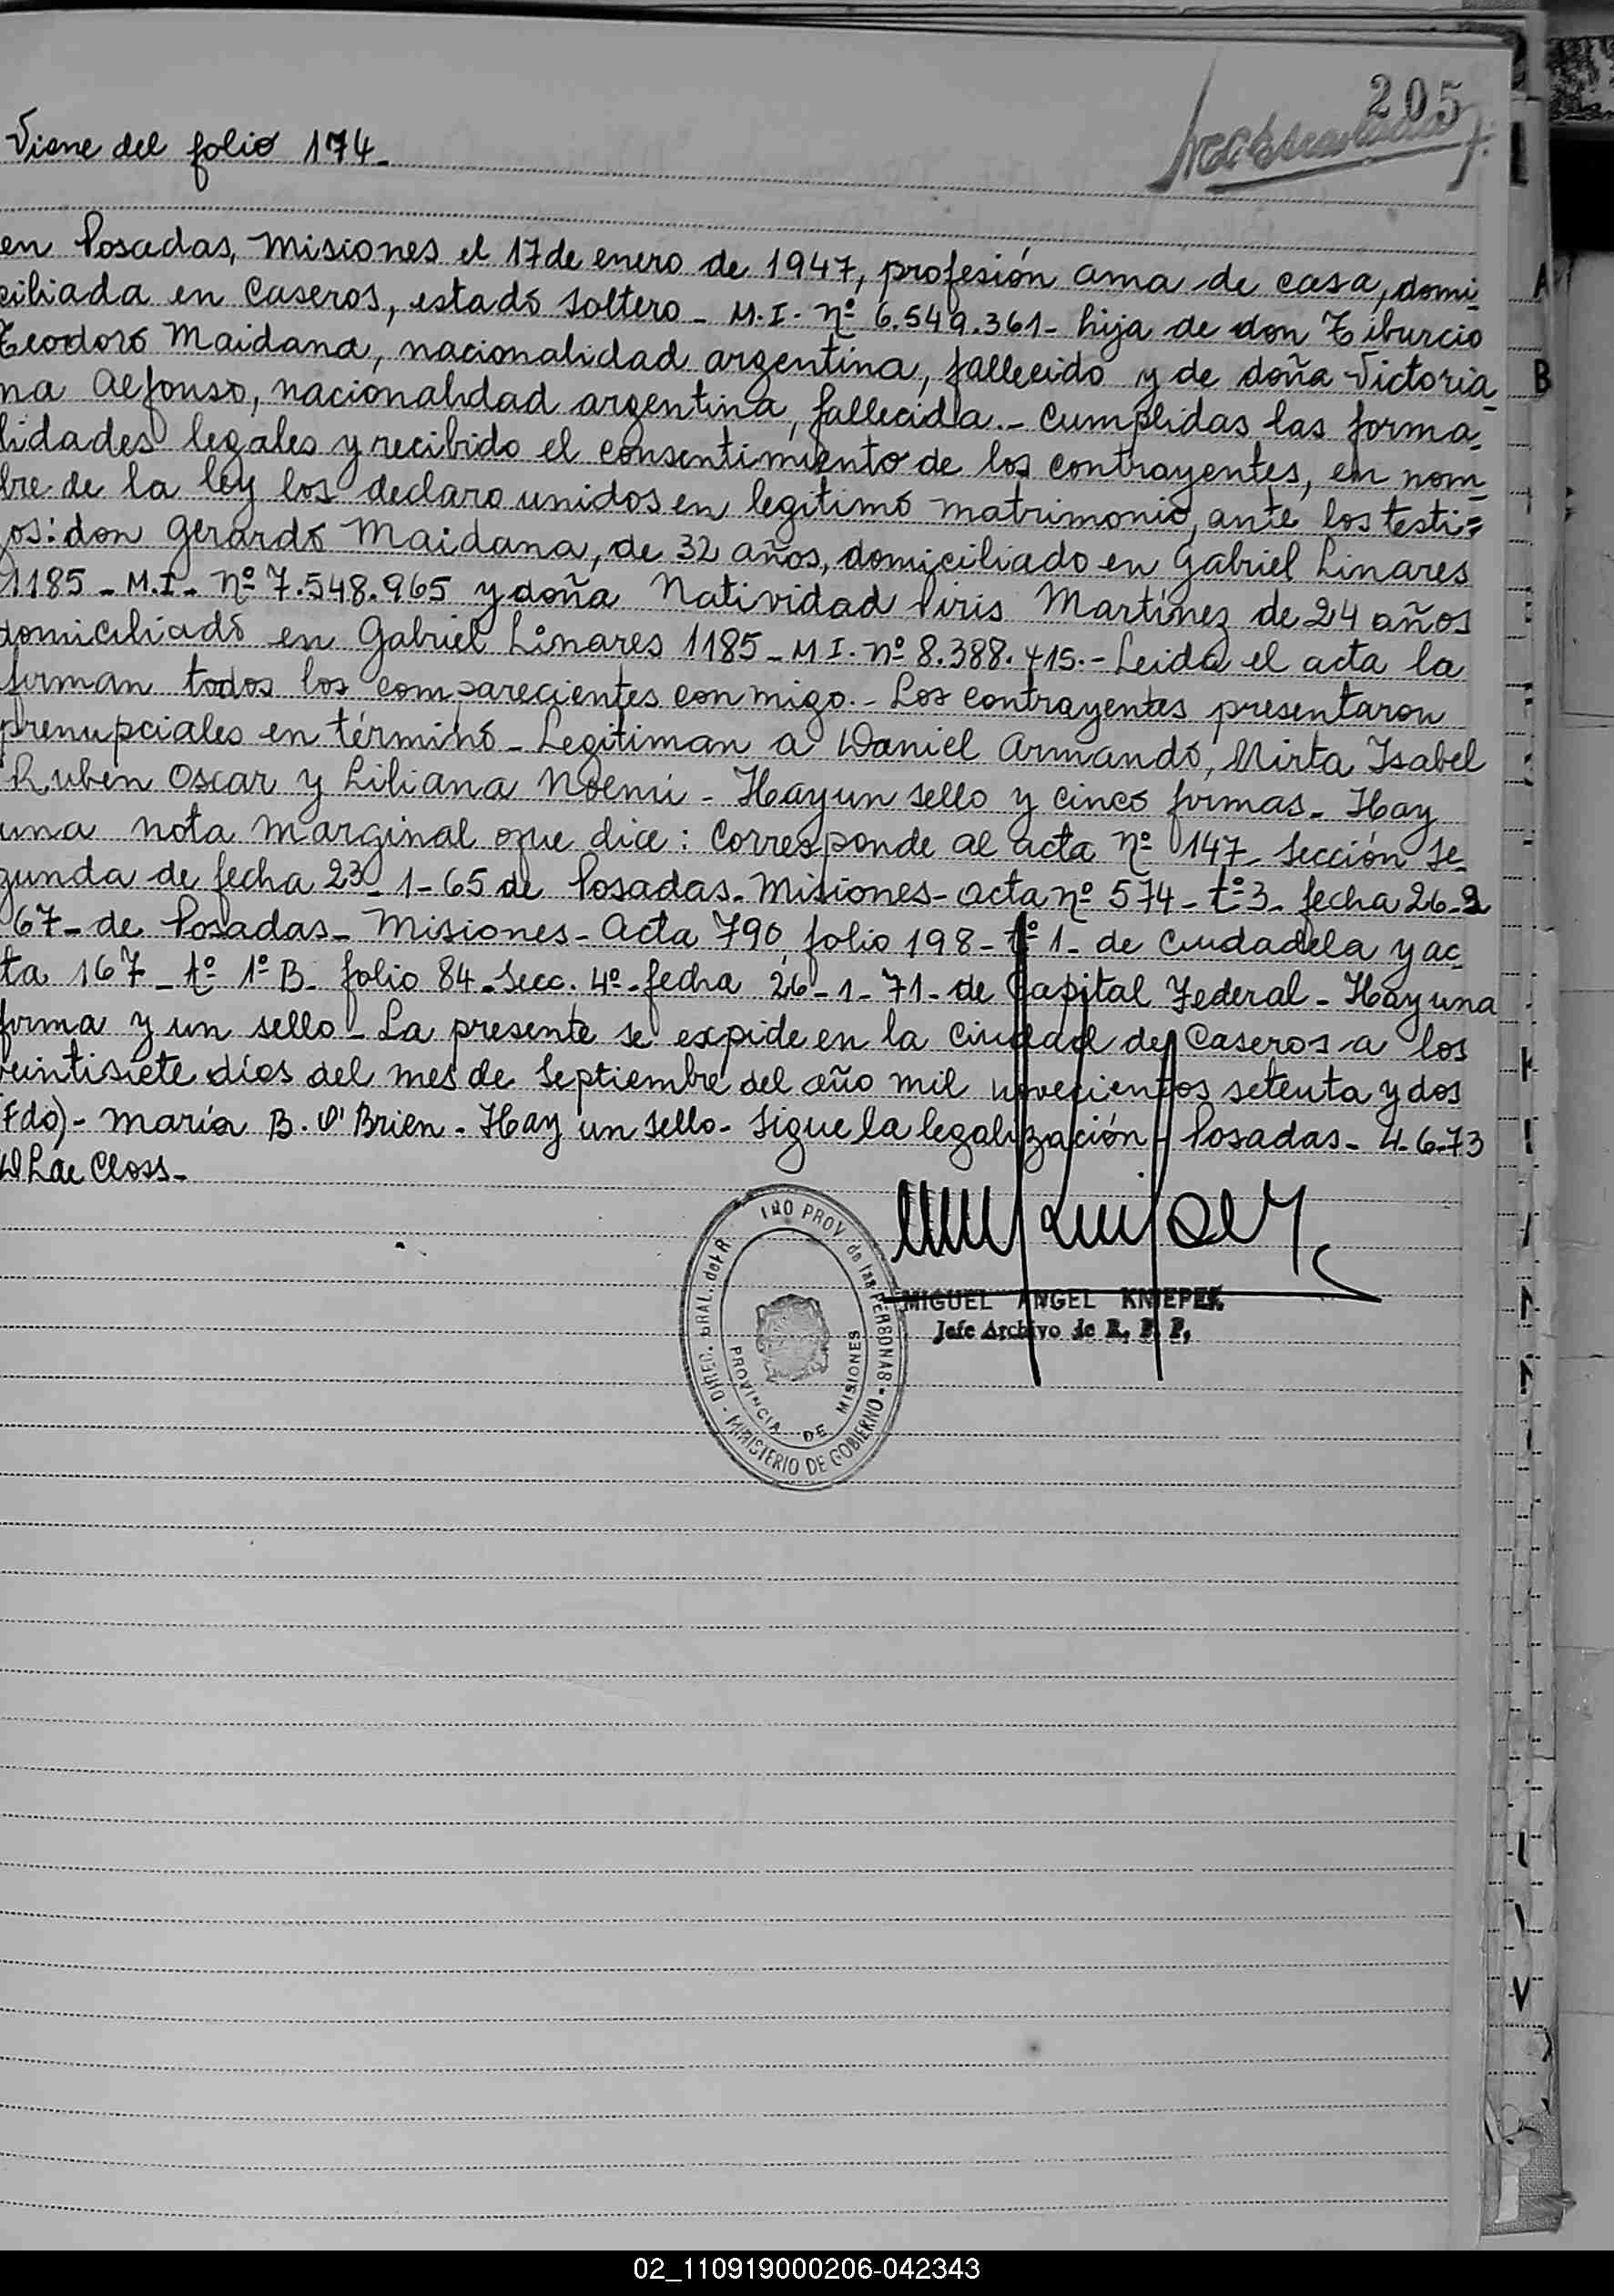 205
Viene del folio 174-
en Posadas, Misiones el 17 de enero de 1947, profesión ama de casa, domi-
ciliada en Caseros, estado soltero - M.I. Nº 6.549.361- hija de don Tiburcio
Teodoro Maidana, nacionalidad argentina, fallecido y de doña Victoria-
na Alfonso, nacionalidad argentina, fallecida.- Cumplidas las forma-
lidades legales y recibido el consentimiento de los contrayentes, en nom-
bre de la ley los declaro unidos en legítimo matrimonio, ante los testi=
gos: don Gerardo Maidana, de 32 años, domiciliado en Gabriel Linares
1185 - M.I. - Nº 7.548.965 y doña Natividad Piris Martínez de 24 años
domiciliado en Gabriel Linares 1185 - M I. nº 8.388.415.- Leida el acta la
firman todos los comparecientes conmigo.- Los contrayentes presentaron
prenupciales en término - Legitiman a Daniel Armando, Mirta Isabel
Ruben Oscar y Liliana Noemi - Hay un sello y cinco firmas - Hay
una nota marginal que dice: Corresponde al acta nº 147 - Sección Se-
gunda de fecha 23-1-65 de Posadas - Misiones - Acta nº 574 - tº 3 - fecha 26-2
67 - de Posadas - Misiones - Acta 790 folio 198 - tº 1 - de Ciudadela y ac-
ta 167 - tº 1º B - folio 84 - Secc. 4º - fecha 26-1-71 - de Capital Federal - Hay una
firma y un sello - La presente se expide en la Ciudad de Caseros a los
veintisiete días del mes de Septiembre del año mil novecientos setenta y dos
Fdo) - María B. O'Brien - Hay un sello - Sigue la legalización - Posadas - 4-6-73
Closs -
MIGUEL ANGEL KNIEPER
Jefe Archivo de R. P. P.
DIREC. GRAL. del R PROV de las PERSONAS - MINISTERIO DE GOBIERNO -
PROVINCIA DE MISIONES
A
B
K
V
02_110919000206-042343